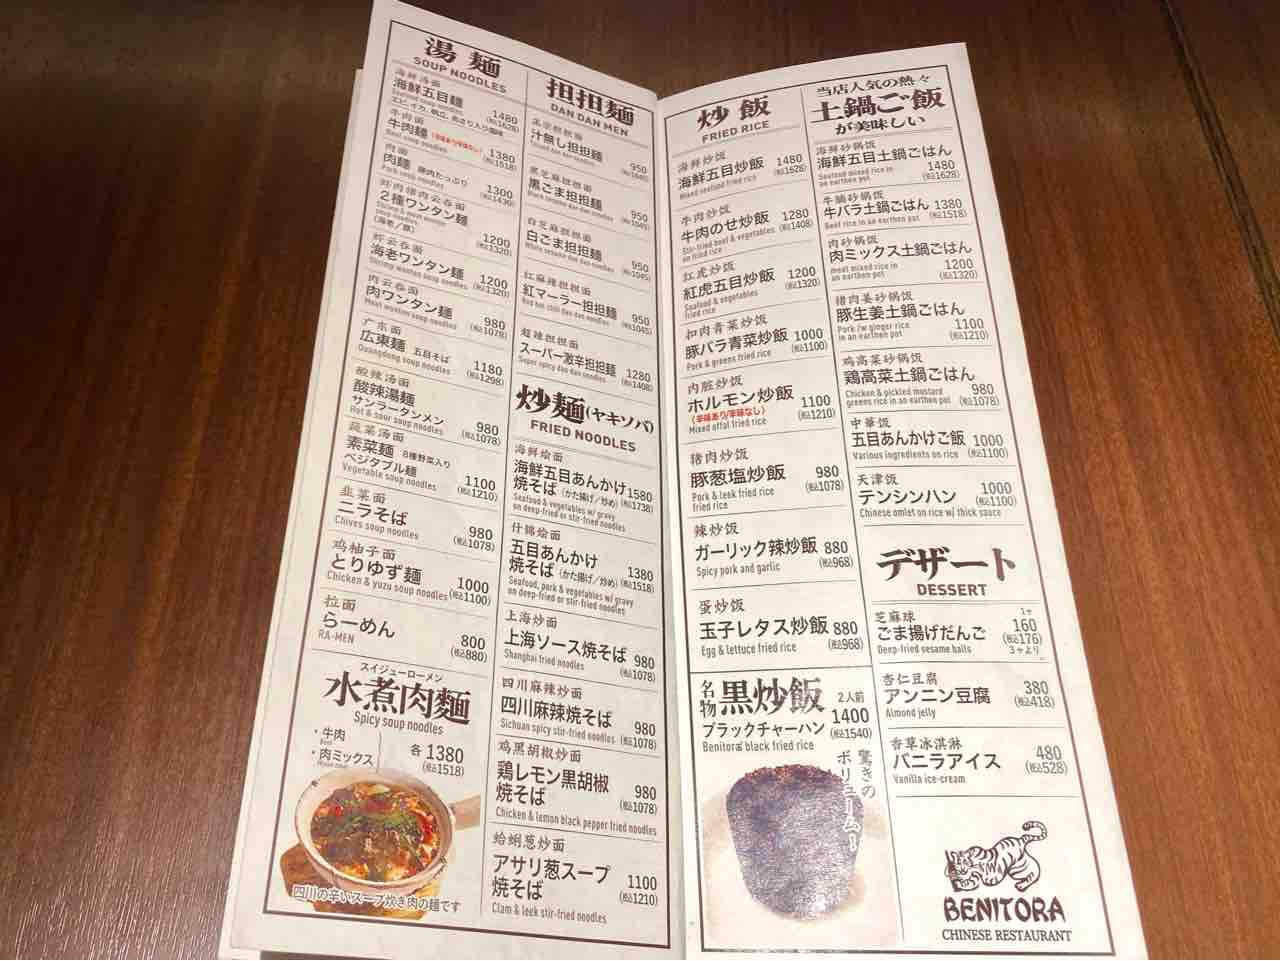 湯麺
SOUP NOODLES
海鮮汤面
海鮮五目麺
Seafood soup noodles
エビ,イカ,帆立,あさり入り塩味
1480
(税込1628)
牛肉面
牛肉麺 (辛味あり/辛味なし)
Beef soup noodles
1380
(税込1518)
肉面
肉麺 豚肉たっぷり
Pork soup noodles
1300
(税込1430)
2種ワンタン麺
Shrimp & meat wonton
soup noodles
(海老/豚)
1200
(税込1320)
虾云吞面
海老ワンタン麺
Shrimp wonton soup noodles
1200
(税込1320)
肉云吞面
肉ワンタン麺
Meat wonton soup noodles
980
(税込1078)
广东面
広東麺 五目そば
Guangdong soup noodles
1180
(税込1298)
酸辣汤面
酸辣湯麺
サンラータンメン
Hot & sour soup noodles
980
(税込1078)
蔬菜汤面
素菜麺 8種野菜入り
ベジタブル麺
Vegetable soup noodles
1100
(税込1210)
韭菜面
ニラそば
Chives soup noodles
980
(税込1078)
鸡柚子面
とりゆず麺
Chicken & yuzu soup noodles
1000
(税込1100)
拉面
らーめん
RA-MEN
800
(税込880)
スイジューローメン
水煮肉麺
Spicy soup noodles
・牛肉
Beef
・肉ミックス
Mixed meat
各 1380
(税込1518)
四川の辛いスープ炊き肉の麺です
担担麺
DAN DAN MEN
汁無し担担麺
950
(税込1045)
黑芝麻担担面
黒ごま担担麺
Black sesame dan dan noodles
950
(税込1045)
白芝麻担担面
白ごま担担麺
White sesame dan dan noodles
950
(税込1045)
红麻辣担担面
紅マーラー担担麺
Red hot chili dan dan noodles
950
(税込1045)
超辣担担面
スーパー激辛担担麺
Super spicy dan dan noodles
1280
(税込1408)
炒麺(ヤキソバ)
FRIED NOODLES
海鲜烩面
海鮮五目あんかけ
焼そば (かた揚げ/炒め)
Seafood & vegetables w/ gravy
on deep-fried or stir-fried noodles
1580
(税込1738)
什锦烩面
五目あんかけ
焼そば (かた揚げ/炒め)
Seafood, pork & vegetables w/ gravy
on deep-fried or stir-fried noodles
1380
(税込1518)
上海炒面
上海ソース焼そば
Shanghai fried noodles
980
(税込1078)
四川麻辣炒面
四川麻辣焼そば
Sichuan spicy stir-fried noodles
980
(税込1078)
鸡黑胡椒炒面
鶏レモン黒胡椒
焼そば
Chicken & lemon black pepper fried noodles
980
(税込1078)
蛤蜊葱炒面
アサリ葱スープ
焼そば
Clam & leek stir-fried noodles
1100
(税込1210)
炒飯
FRIED RICE
海鲜炒饭
海鮮五目炒飯
Mixed seafood fried rice
1480
(税込1628)
牛肉炒饭
牛肉のせ炒飯
Stir-fried beef & vegetables
on fried rice
1280
(税込1408)
红虎炒饭
紅虎五目炒飯
Seafood & vegetables
fried rice
1200
(税込1320)
扣肉青菜炒饭
豚バラ青菜炒飯
Pork & greens fried rice
1000
(税込1100)
内脏炒饭
ホルモン炒飯
(辛味あり/辛味なし)
Mixed offal fried rice
1100
(税込1210)
猪肉炒饭
豚葱塩炒飯
Pork & leek fried rice
fried rice
980
(税込1078)
辣炒饭
ガーリック辣炒飯
Spicy pork and garlic
880
(税込968)
蛋炒饭
玉子レタス炒飯
Egg & lettuce fried rice
880
(税込968)
名物 黒炒飯
ブラックチャーハン
Benitora's black fried rice
2人前
1400
(税込1540)
驚きの
ボリューム!
当店人気の熱々
土鍋ご飯
が美味しい
海鲜砂锅饭
海鮮五目土鍋ごはん
Seafood mixed rice in
an earthen pot
1480
(税込1628)
牛腩砂锅饭
牛バラ土鍋ごはん
Beef rice in an earthen pot
1380
(税込1518)
肉砂锅饭
肉ミックス土鍋ごはん
meat mixed rice in
an earthen pot
1200
(税込1320)
猪肉姜砂锅饭
豚生姜土鍋ごはん
Pork /w ginger rice
in an earthen pot
1100
(税込1210)
鸡高菜砂锅饭
鶏高菜土鍋ごはん
Chicken & pickled mustard
greens rice in an earthen pot
980
(税込1078)
中華饭
五目あんかけご飯
Various ingredients on rice
1000
(税込1100)
天津饭
テンシンハン
Chinese omlet on rice w/ thick sauce
1000
(税込1100)
デザート
DESSERT
芝麻球
ごま揚げだんご
Deep-fried sesame balls
1ヶ
160
(税込176)
3ヶより
杏仁豆腐
アンニン豆腐
Almond jelly
380
(税込418)
香草冰淇淋
バニラアイス
Vanilla ice-cream
480
(税込528)
BENITORA
CHINESE RESTAURANT